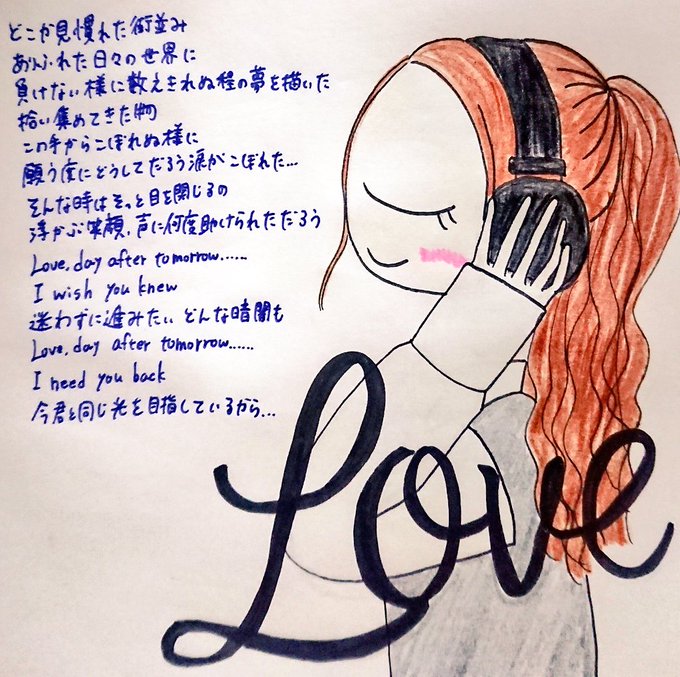 どこか見慣れた街並み
あふれた日々の世界に
負けない様に数えきれぬ程の夢を描いた
拾い集めてきた物
この手からこぼれぬ様に
願う度にどうしてだろう涙がこぼれた...
そんな時はそっと目を閉じるの
浮かぶ笑顔、声に何度助けられただろう
Love, day after tomorrow......
I wish you knew
迷わずに進みたい どんな暗闇も
Love, day after tomorrow......
I need you back
今君と同じ光を目指しているから...
Love